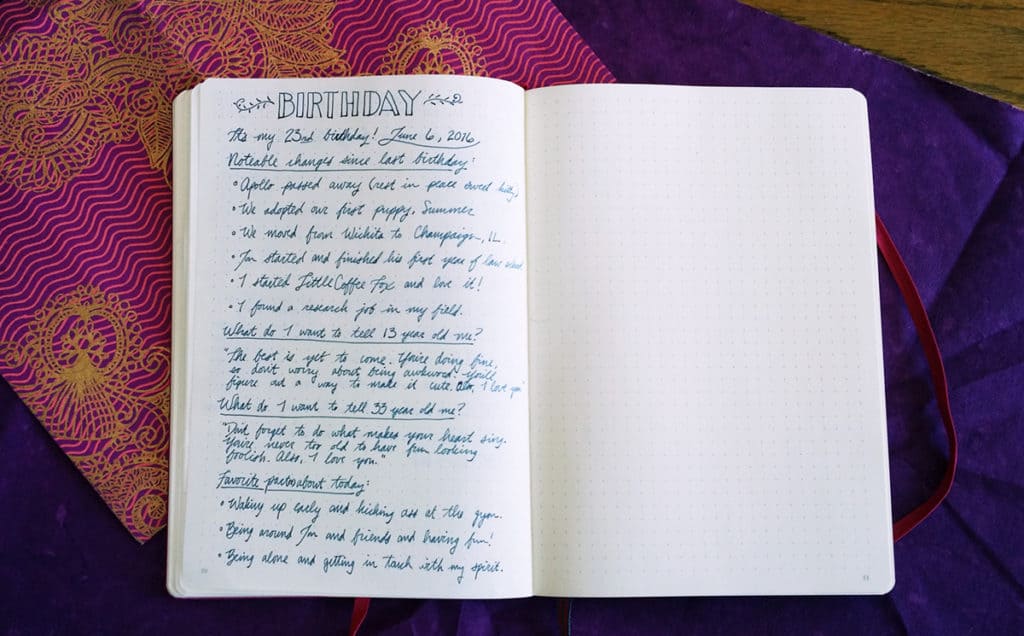 BIRTHDAY
It's my 23rd birthday! June 6, 2016
Noteable changes since last birthday:
• Apollo passed away (rest in peace sweet kitty)
• We adopted our first puppy, Summer
• We moved from Wichita to Champaign, IL.
• Jon started and finished his first year of law school
• I started LittleCoffeeFox and love it!
• I found a research job in my field.
What do I want to tell 13 year old me?
"The best is yet to come. You're doing fine,
so don't worry about being awkward. You'll
figure out a way to make it cute. Also, I love you"
What do I want to tell 33 year old me?
"Don't forget to do what makes your heart sing.
You're never too old to have fun looking
foolish. Also, I love you."
Favorite parts about today:
• Waking up early and kicking ass at the gym.
• Being around Jon and friends and having fun!
• Being alone and getting in touch with my spirit.